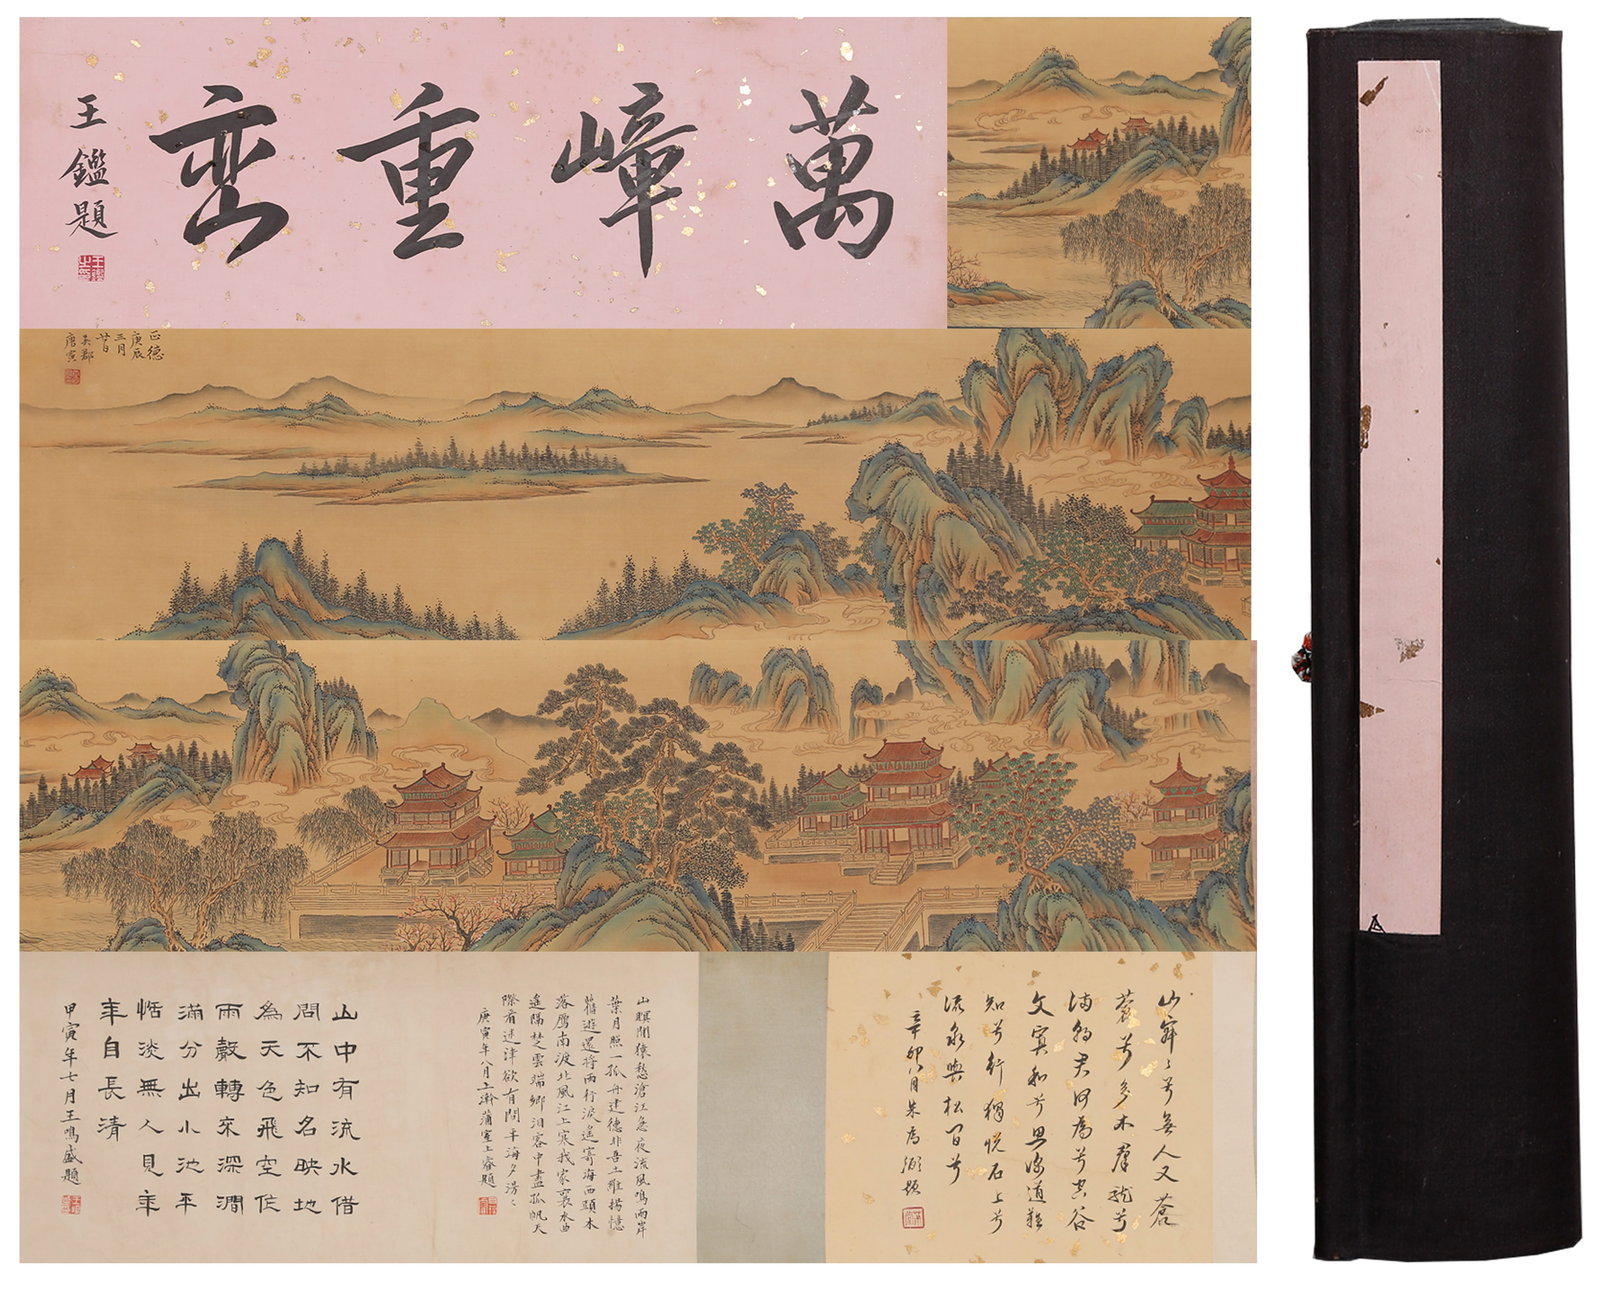 萬嶂重巒
王鑑題
正德
庚辰
三月
廿日
吳郡
唐寅
山寂〻兮無人又蒼
蒼兮多木羣龍兮
滿朝君何為兮空谷
文寡和兮思深道難
知兮行獨悅石上兮
流泉與松間兮
辛卯八月朱為弼題
山暝聞猿愁滄江急夜流風鳴兩岸
葉月照一孤舟建德非吾土維揚憶
舊遊還將兩行淚遙寄海西頭木
落雁南渡北風江上寒我家襄水曲
遙隔楚雲端鄉淚客中盡孤帆天
際看迷津欲有問平海夕漫〻
庚寅年八月上澣蒲室上睿題
山中有流水借
問不知名映地
為天色飛空作
雨聲轉來深澗
滿分出小池平
恬淡無人見年
年自長清
甲寅年七月王鳴盛題